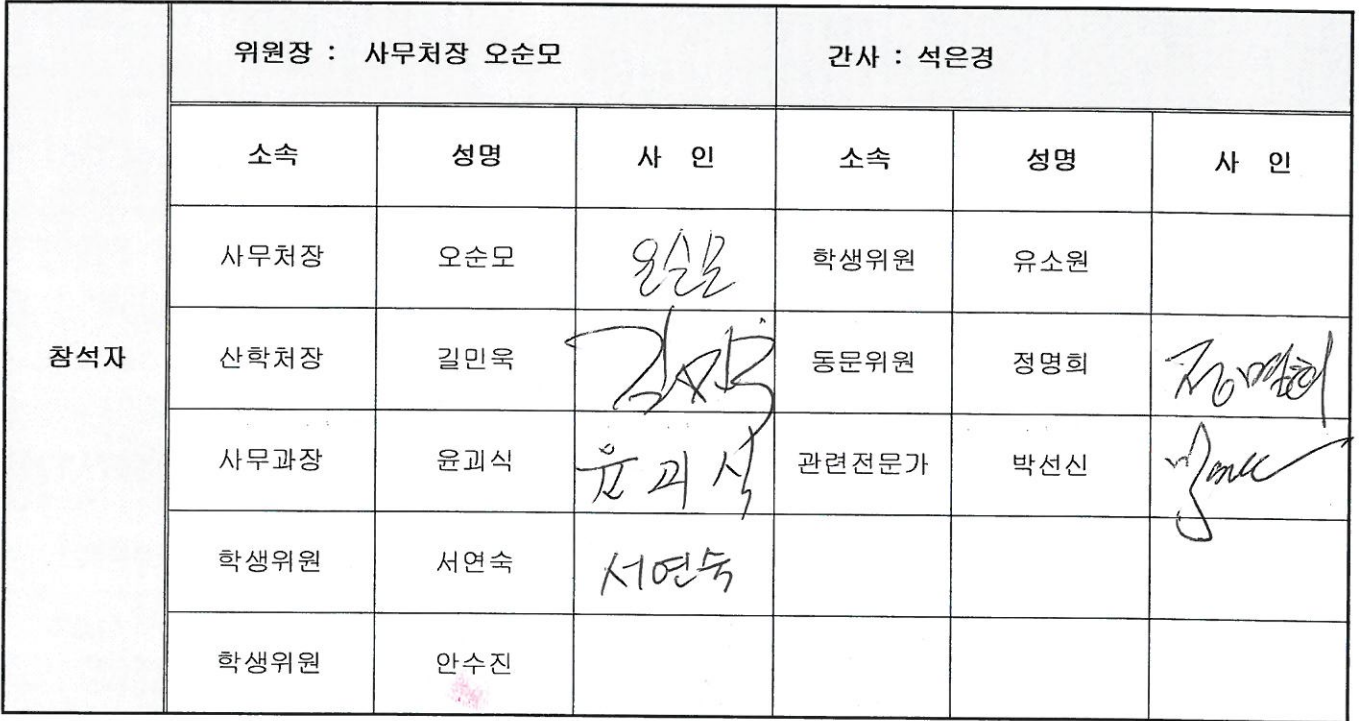 위원장 : 사무처장 오순모 간사 : 석은경
소속 성명 사 인 소속 성명 사 인
사무처장 오순모 오순모 학생위원 유소원
참석자 산학처장 길민욱 동문위원 정명희 정명희
사무과장 윤괴식 윤괴식 관련전문가 박선신
학생위원 서연숙 서연숙
학생위원 안수진